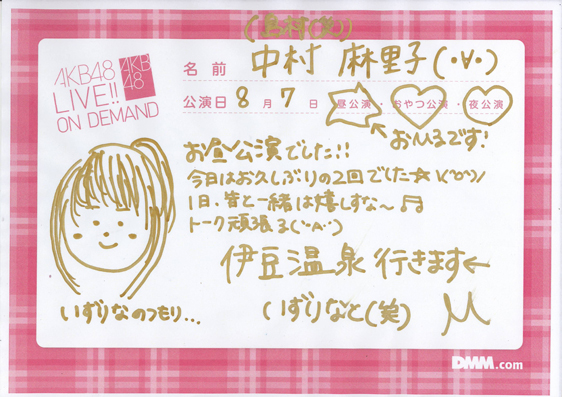 (島村(笑))
AKB48
LIVE!!
ON DEMAND
AKB
48
名前 中村 麻里子(・∀・)
公演日 8月7日 昼公演・おやつ公演・夜公演
おひるです!
お昼公演でした!!
今日はお久しぶりの2回でした☆ \(°o°)/
1日、皆と一緒は嬉しすな〜♬
トーク頑張る(・A・)
伊豆温泉 行きます←
いずりなと(笑)
いずりなのつもり...
M
DMM.com